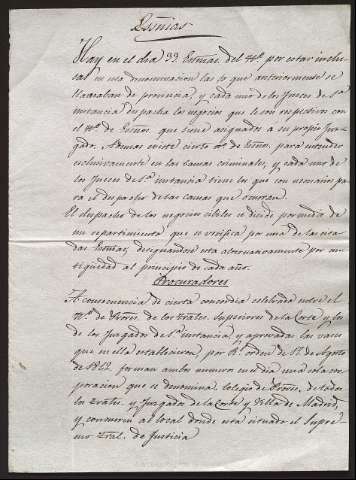 Escñias
Hay en el dia 33. Escrñas. del nº. por estar inclu
sas en esta denominacion las que anteriormente se
llamaban de provincia, y cada uno de los Jueces de 1ª.
instancia despacha los negocios que le son respectivos con
el nº. de Escnos. que tiene asignados a su propio Juz-
gado. Ademas existe cierto nº. de Escnos. para entender
exclusivamente en las causas criminales, y cada uno de
los Jueces de 1ª. instancia tiene los que son necesarios para
el despacho de las causas que ocurran.
El despacho de los negocios civiles se decide por medio de
un repartimiento que se verifica por una de las cita-
das Escrñas, designandose esta alternativamente por an-
tigüedad al principio de cada año.
Procuradores
A consecuencia de cierta concordia celebrada entre el
nº. de Procs. de los Trales. Superiores de la Corte y los
de los Juzgados de 1ª. instancia, y aprobadas las bases
que en ella establecieron, por Rl. orden de 1º. de Agosto
de 1842 forman ambos numeros en el dia una sola cor-
poracion que se denomina Colegio de Procs. de todos
los Trales. y Juzgados de la Corte y Villa de Madrid,
y concurren al local donde esta situado el Supre-
mo Tral. de Justicia